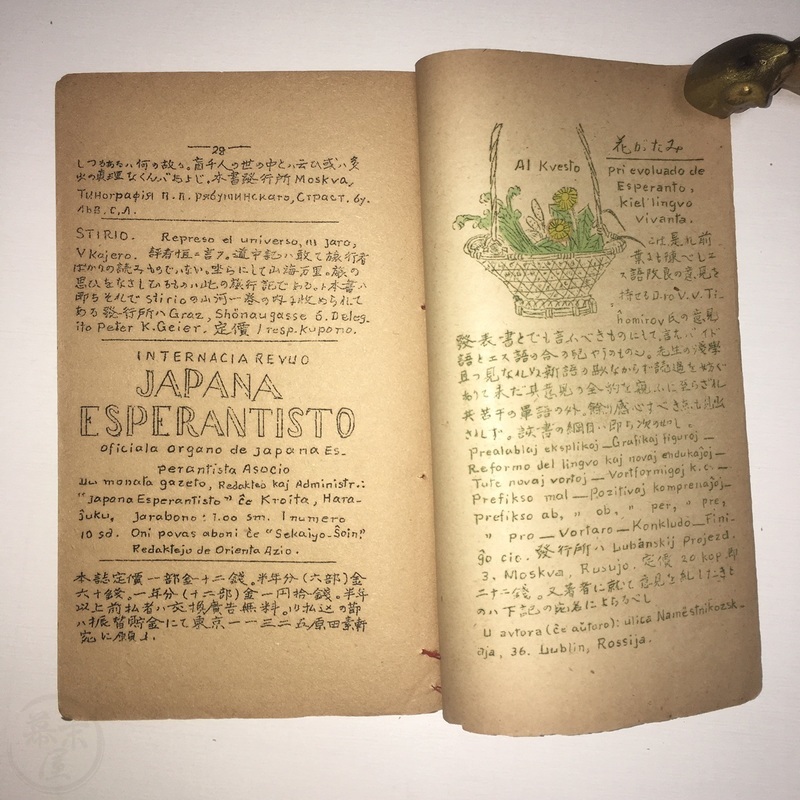 29
しつもあらハ何の故か。盲千人の世の中とハ云ひ或ハ多
少の真理なくんバあらじ。本書發行所 Moskva,
Типографія п.п. рябушинскаго, Страст. бу.
STIRIO. Represo el universo, III jaro,
V Kajero. 評者恒に言ふ。道中記ハ敢て旅行者
ばかりの読みものでハない。坐らにして山海万里。旅の
思ひをなさしむるものハ此の旅行記である。ト本書ハ
即ちそれで stirio の山河一巻の内に收められて
ある 發行所ハ Graz, Shönaugasse 6. Deleg-
ito Peter K. Geier. 定價 1 resp. kupono.
INTERNACIA REVUO
JAPANA
ESPERANTISTO
Oficiala Organo de Japana Es-
perantista Asocio
Du monata gazeto, Redakteo kaj Administr.:
"Japana Esperantisto" ĉe Kroita, Hara-
ĵuku, Jarabono: 1.00 sm. 1 numero
10 sd. Oni povas aboni ĉe "Sekaiyo-Ŝoin."
Redaktejo de Orienta Azio.
本誌定價一部金十二錢。半年分(六部)金
六十錢。一年分(十二部)金一円拾錢。半年
以上前払者ハ交換廣告無料。払込の節
ハ振替貯金にて東京一一三二五原田章新
宛に願ふ。
花がたみ
Al Kvesto
pri evoluado de
Esperanto,
kiel lingvo
vivanta.
こは是れ前
葉にも
ス語改良の意見を
持せる D-ro V. V. Ti-
ĥomirov 氏の意見
發表書とでも言ふべきものにして、言はバイド
語とエス語の合の子やうのもの。先生の淺學
且つ見なれぬ新語の
ありて未だ其意見の全豹を窺ふに至らざれ
共若干の單語の外。餘り感心すべき点も見出
さしず。該書の綱目ハ即ち次の如し。
Prealablaj eksplikoj — Grafikaj figuroj —
Reformo del lingvo kaj novaj endukaĵoj —
Tute novaj vortoj — Vortformigoj k.c. —
Prefikso mal — Pozitivaj komprenaĵoj —
Prefikso ab, " ob, " per, " pre,
" pro — Vortaro — Konkludo — Fini-
ĝo cit. 發行所ハ Lubánskij Projezd.
3, Moskva, Rusujo. 定價 20 kop. 即
二十二錢。又著者に就て意見を糺したきと
のハ下記の宛名によるべし
U avtora (ĉe aŭtoro): ulica Naměstnikozsk-
aja, 36. Lublin, Rossija.